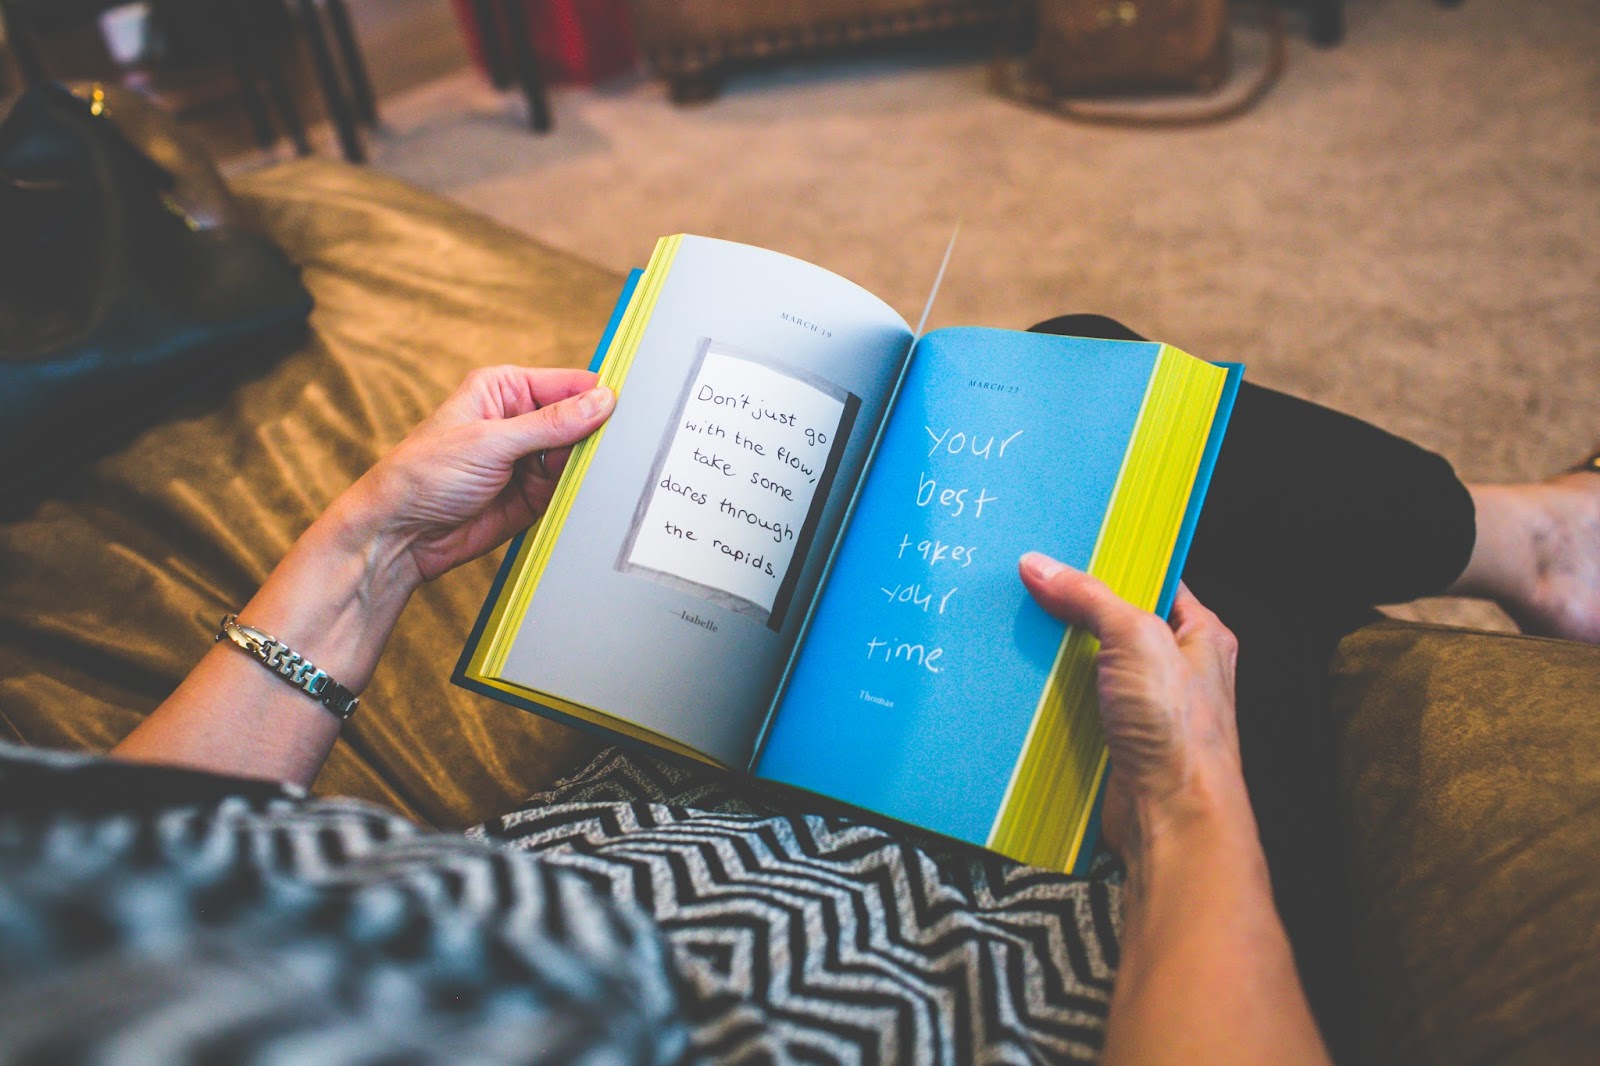 MARCH 19
Don't just go
with the flow,
take some
dares through
the rapids.
—Isabelle
MARCH 22
your
best
takes
your
time.
Thomas